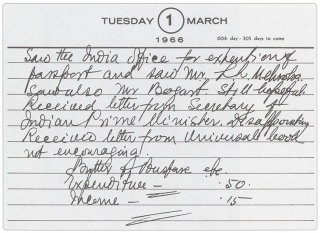 TUESDAY 1 MARCH
1966
60th day - 305 days to come
Saw the India office for extention of
passport and saw Mr. L.K.
Saw also Mr Bogart. Still hopeful.
Received letter from Secretary of
Indian Prime Minister. Disappointing
Received letter from Universal book
not encouraging.
Butter etc
Expenditure — .50.
Income — .15